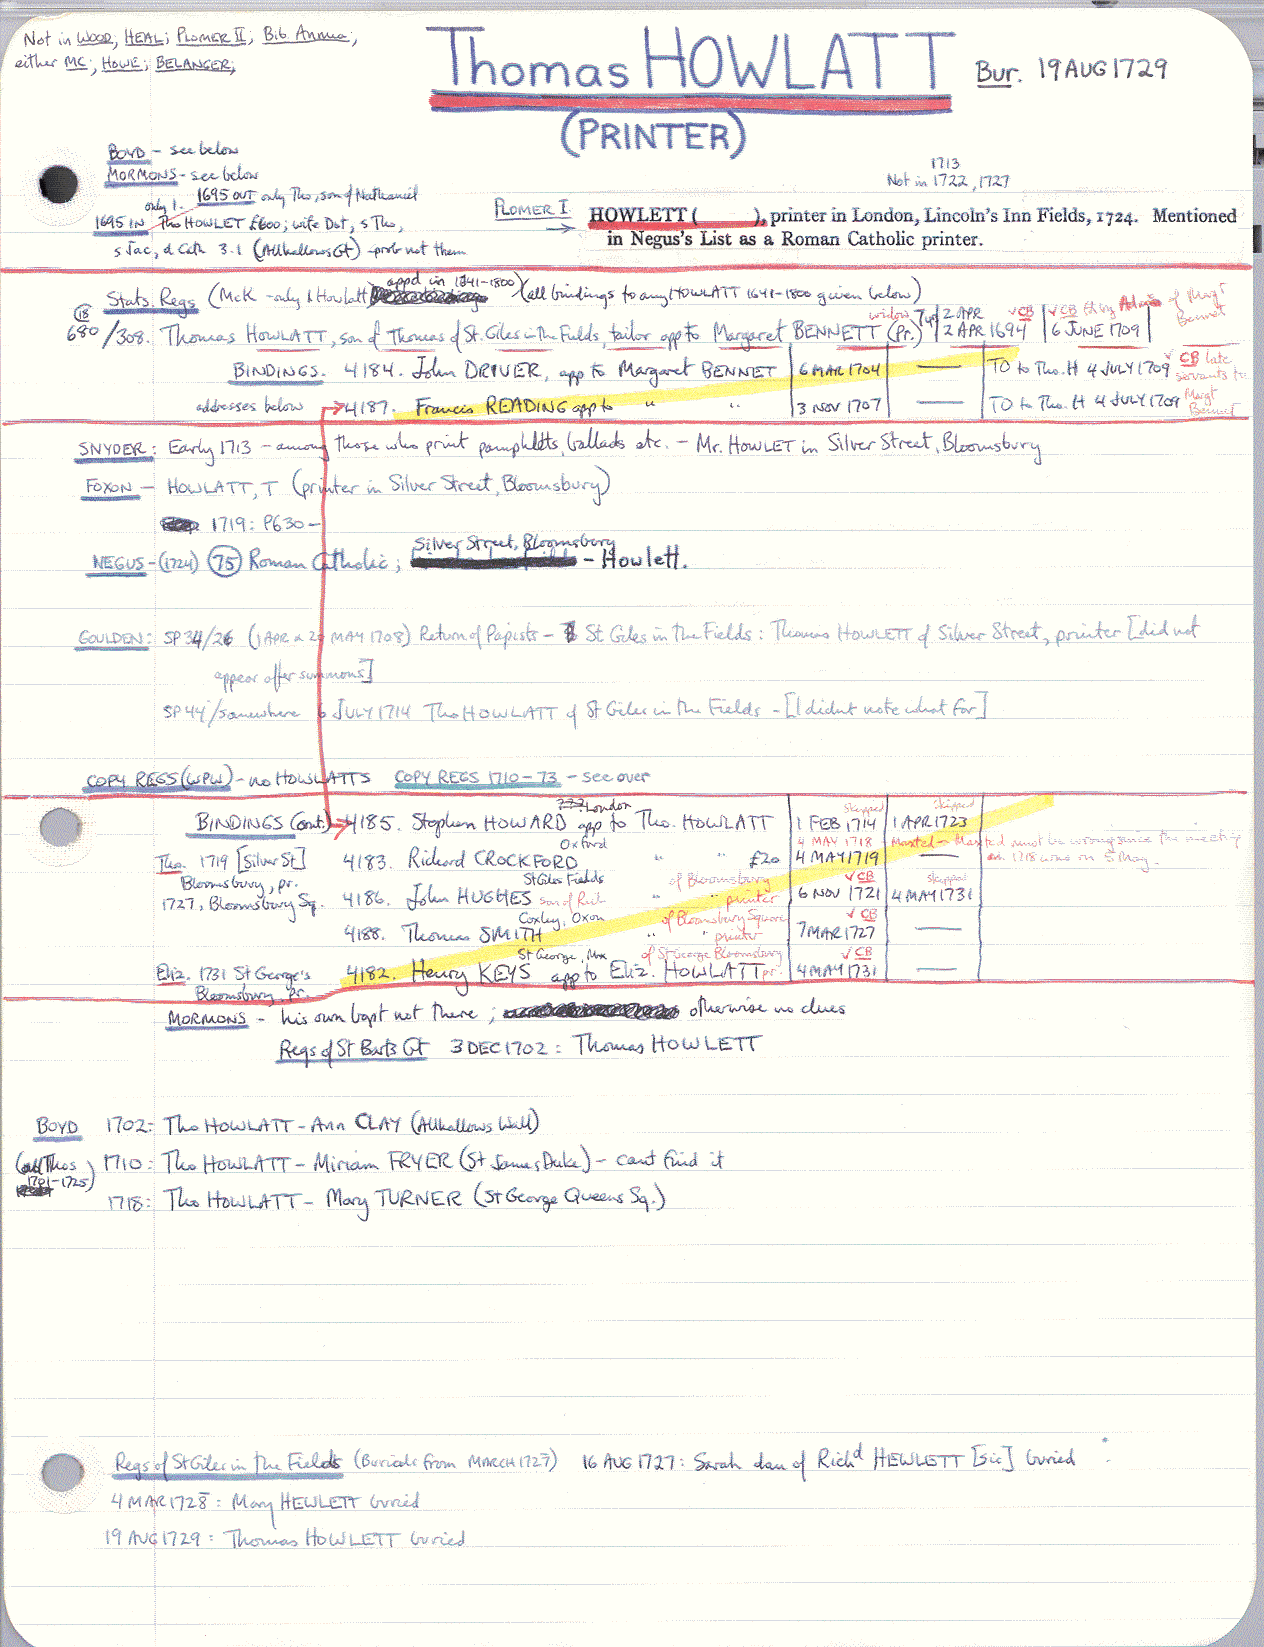 Not in WOOD; HEAL; PLOMER II; Bib. Annua;
either MC; HOWE; BELANGER;
Thomas HOWLATT
Bur. 19 AUG 1729
(PRINTER)
BOYD - see below
MORMONS - see below
1695 OUT only Tho, son of Nathaniel
only 1.
1695 IN Tho HOWLET £600; wife Dot, s Tho,
s Jac, d Cath 3.1 (Allhallows Gt) - prob not them
1713
Not in 1722, 1727
PLOMER I
HOWLETT ( ), printer in London, Lincoln's Inn Fields, 1724. Mentioned
in Negus's List as a Roman Catholic printer.
appd in 1641-1800
Stats. Regs (McK - only 1 Howlatt (all bindings to any HOWLATT 1641-1800 given below)
18
680/308. Thomas HOWLATT, son of Thomas of St. Giles in the Fields, tailor app to Margaret BENNETT (Pr.) widow 7yrs 2 APR 2 APR 1694 √CB 6 JUNE 1709 √CB of Margt Bennett
BINDINGS. 4184. John DRIVER, app to Margaret BENNET 6 MAR 1704 — TO to Tho. H 4 JULY 1709 √CB late servants to Margt Bennet
addresses below 4187. Francis READING app to " " 3 NOV 1707 — TO to Tho. H 4 JULY 1709
SNYDER: Early 1713 - among those who print pamphlets, ballads etc. - Mr. HOWLET in Silver Street, Bloomsbury
FOXON - HOWLATT, T (printer in Silver Street, Bloomsbury)
1719: P630 -
Silver Street, Bloomsbury
NEGUS - (1724) 75 Roman Catholic; - Howlett.
GOULDEN: SP 34/26 (1 APR & 29 MAY 1708) Return of Papists - St Giles in the Fields: Thomas HOWLETT of Silver Street, printer [did not
appear after summons]
SP 44/somewhere 6 JULY 1714 Tho HOWLATT of St Giles in the Fields - [I didnt note what for]
COPY REGS (WPW) - no HOWLATTS COPY REGS 1710-73 - see over
BINDINGS (cont.) 4185. Stephen HOWARD ??? London app to Tho. HOWLATT 1 FEB 1714 skipped 1 APR 1723 skipped
Tho. 1719 [Silver St] 4183. Richard CROCKFORD Oxford " " £20 4 MAY 1718 4 MAY 1719 — Maxted - Maxted must be wrong since the meeting in 1718 was on 5 May.
Bloomsbury, pr.
1727, Bloomsbury Sq. 4186. John HUGHES St Giles Fields son of Rich " of Bloomsbury " printer 6 NOV 1721 √CB 4 MAY 1731 skipped
4188. Thomas SMITH Coxley, Oxon " of Bloomsbury Square " printer 7 MAR 1727 √CB —
Eliz. 1731 St George's 4182. Henry KEYS St George, Mx app to Eliz. HOWLATT pr. of St George Bloomsbury 4 MAY 1731 √CB —
Bloomsbury, pr.
MORMONS - his own bapt not there; otherwise no clues
Regs of St Barts Gt 3 DEC 1702: Thomas HOWLETT
BOYD 1702: Tho HOWLATT - Ann CLAY (Allhallows Wall)
(all Thos 1701-1725) 1710: Tho HOWLATT - Miriam FRYER (St James Duke) - cant find it
1718: Tho HOWLATT - Mary TURNER (St George Queens Sq.)
Regs of St Giles in the Fields (Burials from MARCH 1727) 16 AUG 1727: Sarah dau of Richd HEWLETT [sic] buried
4 MAR 1728: Mary HEWLETT buried
19 AUG 1729: Thomas HOWLETT buried